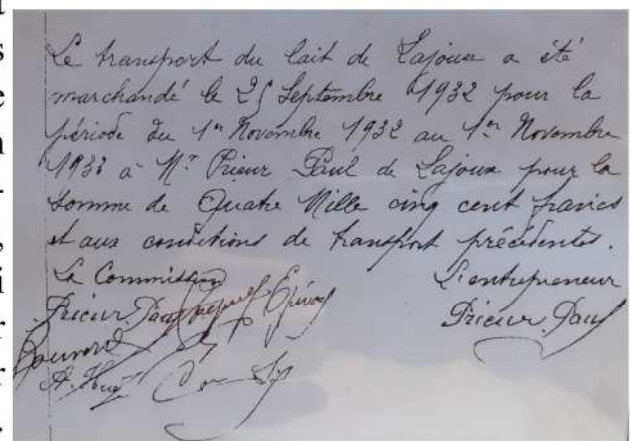 Le transport du lait de Lajoux a été
marchandé le 25 Septembre 1932 pour la
période du 1er Novembre 1932 au 1er Novembre
1933 à Mr Prieur Paul de Lajoux pour la
somme de Quatre Mille cinq cent francs
et aux conditions de transport précédentes.
La Commission L'entrepreneur
Prieur Prieur Paul